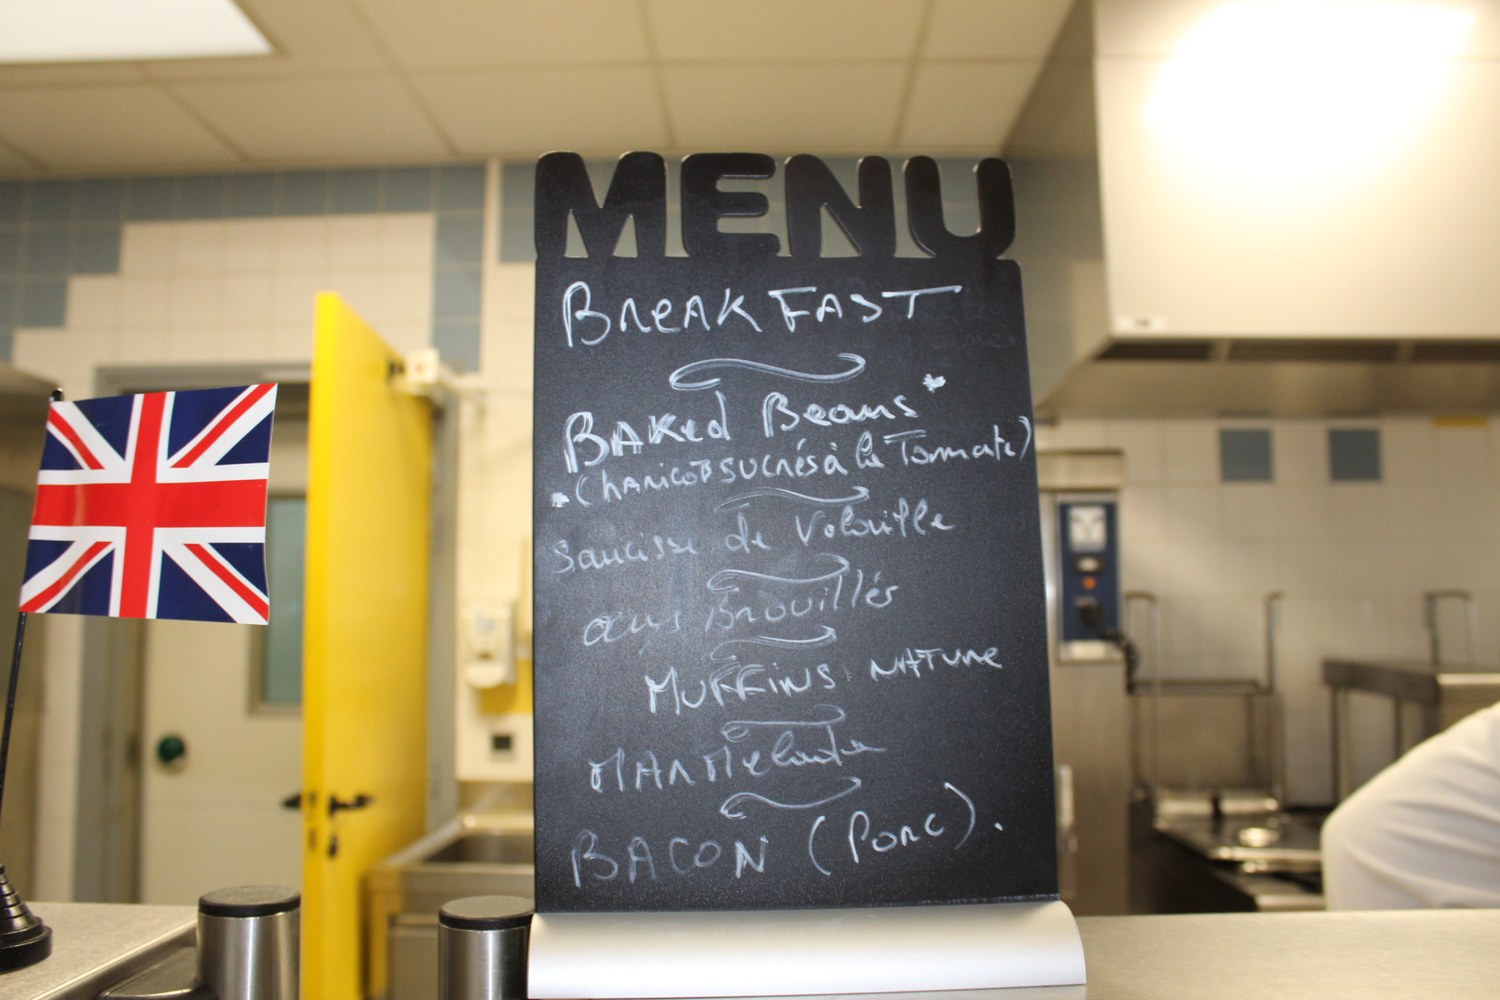 MENU
BREAKFAST
BAKED Beans*
*(haricots sucrés à la Tomate)
Saucisse de Volaille
œufs Brouillés
MUFFINS NATURE
MARMelade
BACON (Porc).